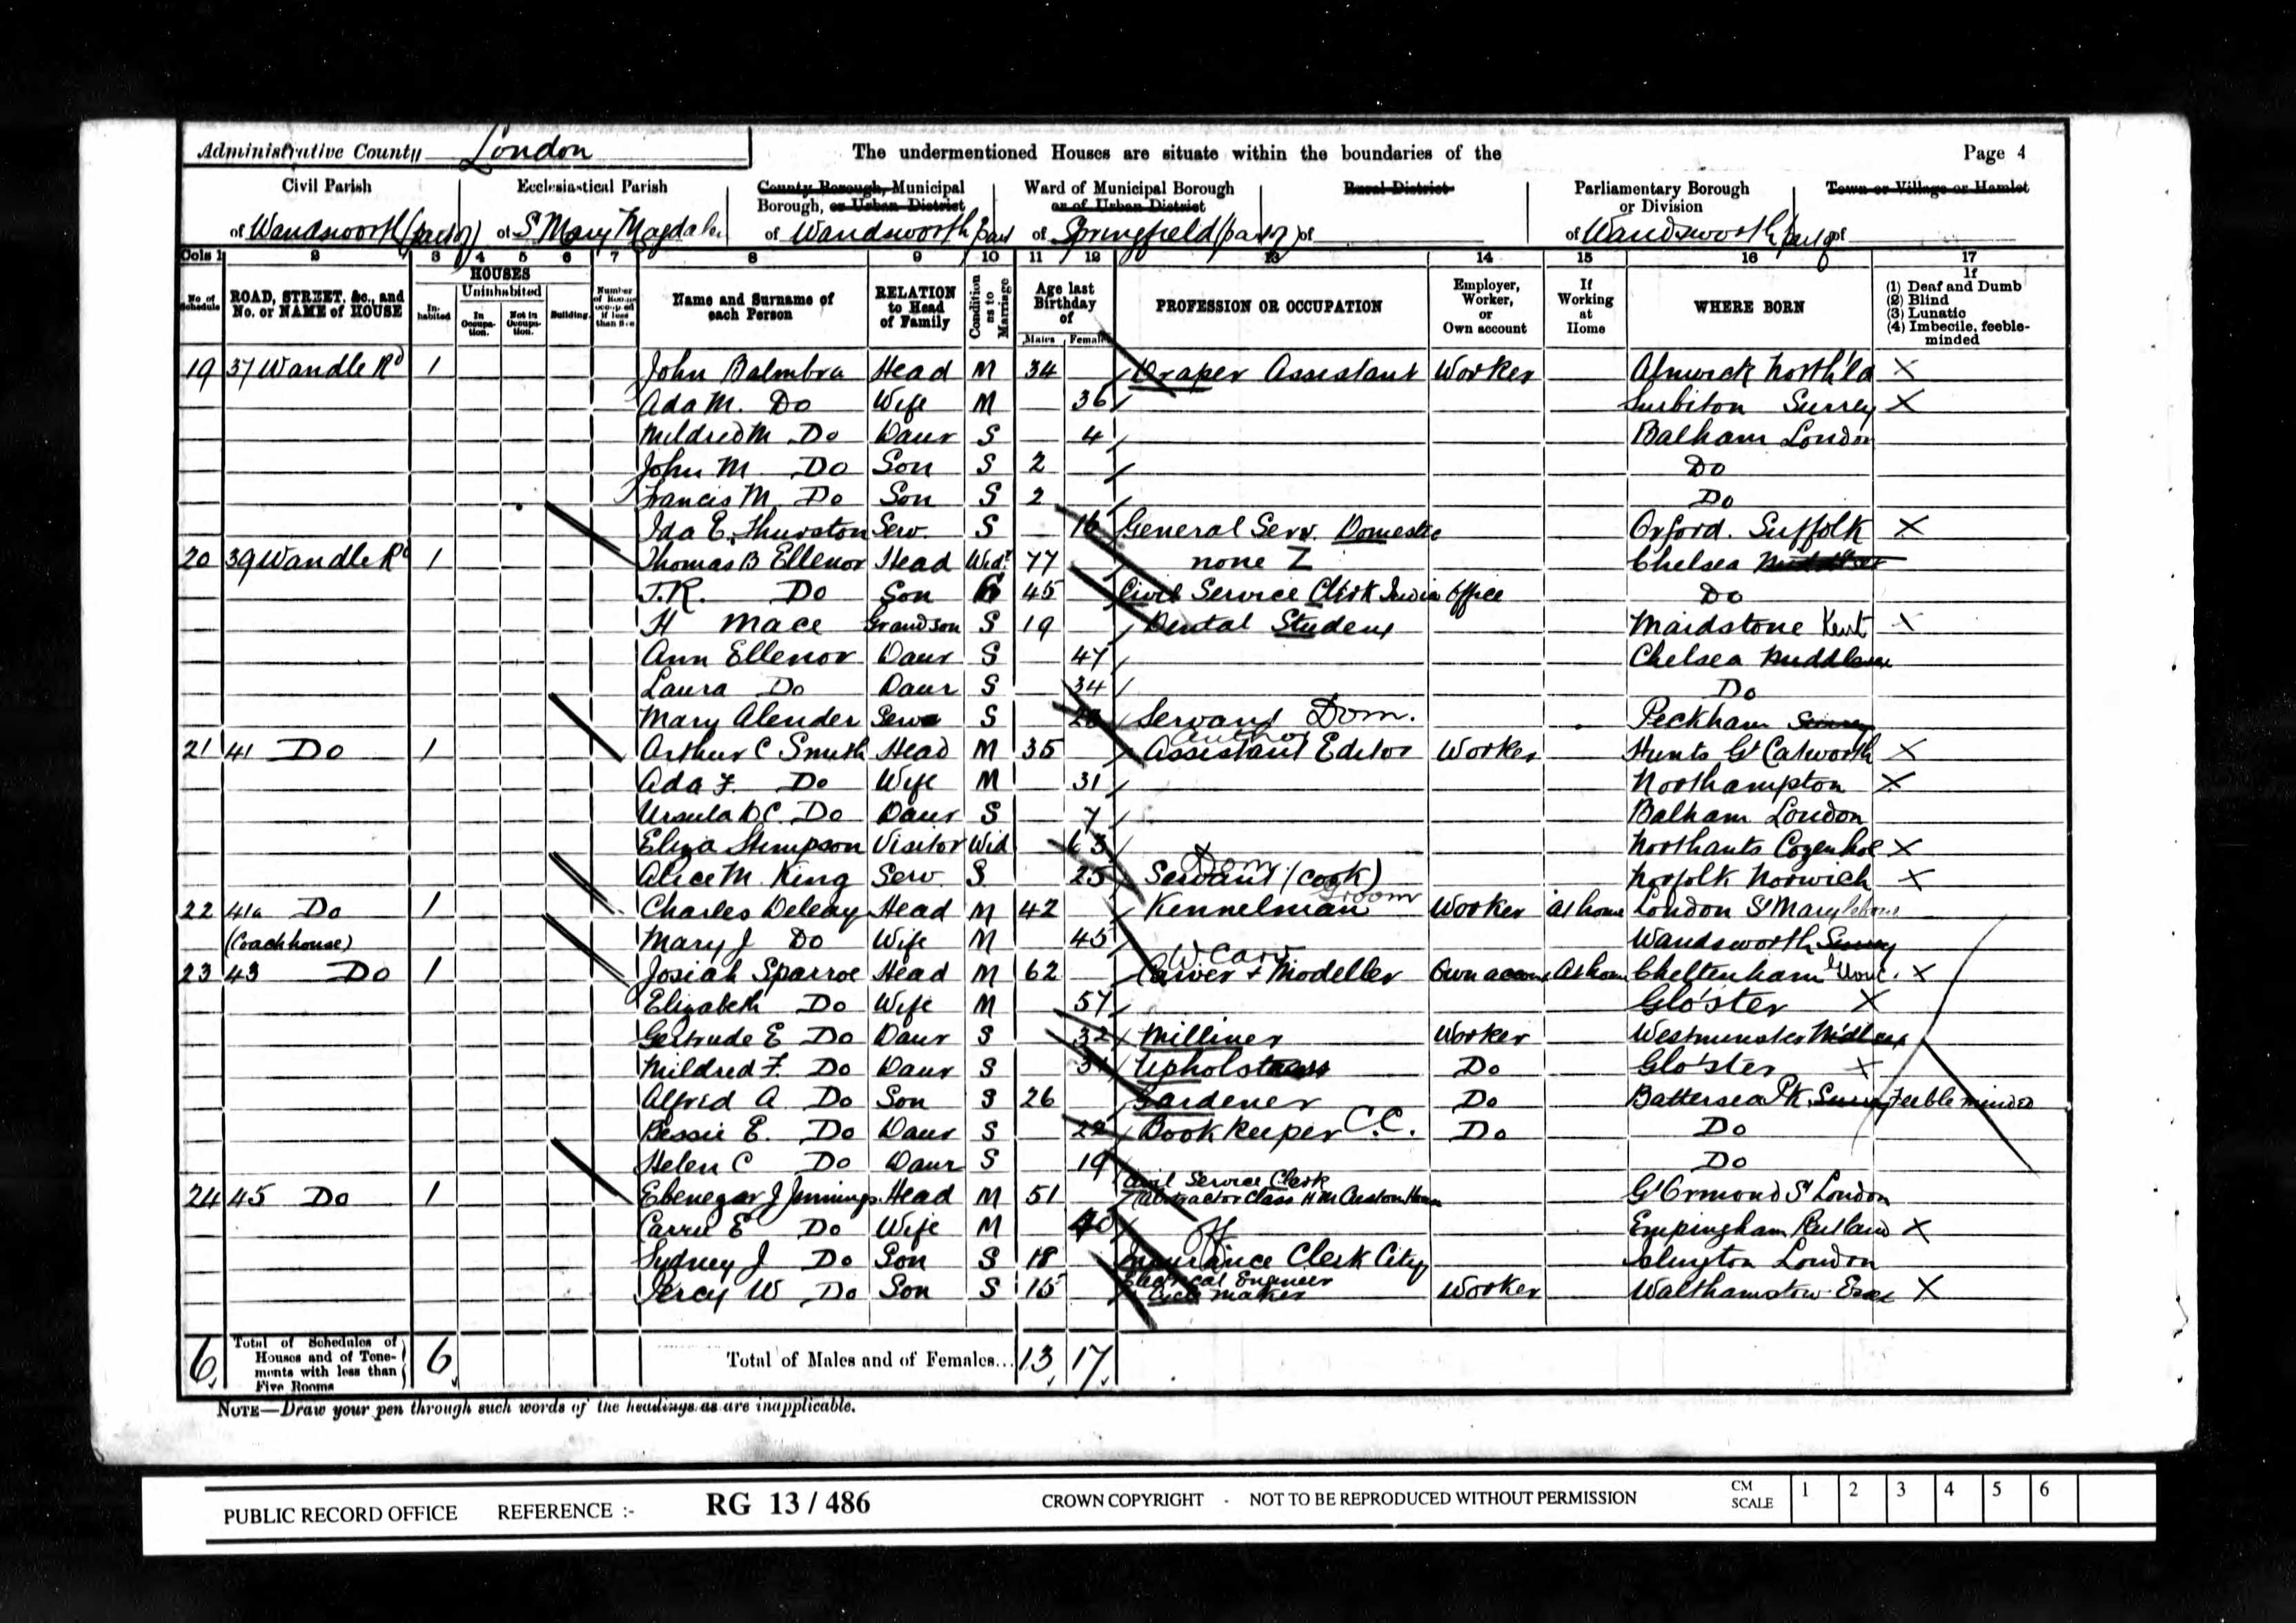 Administrative County London The undermentioned Houses are situate within the boundaries of the Page 4
Civil Parish Ecclesiastical Parish County Borough, Municipal Borough, or Urban District Ward of Municipal Borough or of Urban District Rural District Parliamentary Borough or Division Town or Village or Hamlet
of Wandsworth (part of) of S Mary Magdalen of Wandsworth part of Springfield (part of) of of Wandsworth part of of
Cols 1 2 3 4 5 6 7 8 9 10 11 12 13 14 15 16 17
No. of Schedule ROAD, STREET, &c., and No. or NAME of HOUSE HOUSES Inhabited Uninhabited In Occupation. Not in Occupation. Building. Number of Rooms occupied if less than five Name and Surname of each Person RELATION to Head of Family Condition as to Marriage Age last Birthday of Males Females PROFESSION OR OCCUPATION Employer, Worker, or Own account If Working at Home WHERE BORN If (1) Deaf and Dumb (2) Blind (3) Lunatic (4) Imbecile, feeble-minded
19 37 Wandle Rd 1 John Balmbra Head M 34 Draper Assistant Worker Alnwick North'ld X
Ada M. Do Wife M 36 Surbiton Surrey X
Mildred M Do Daur S 4 Balham London
John M Do Son S 2 Do
Francis M Do Son S 2 Do
Ida E. Thurston Serv. S 16 General Serv. Domestic Orford. Suffolk X
20 39 Wandle Rd 1 Thomas B Ellenor Head Widr 77 none Z Chelsea Middlesex
J.R. Do Son S 45 Civil Service Clerk India Office Do
H Mace Grandson S 19 Dental Student Maidstone Kent X
Ann Ellenor Daur S 47 Chelsea Middlesex
Laura Do Daur S 34 Do
Mary Alender Serv S Servant Dom. Peckham Surrey
21 41 Do 1 Arthur C Smith Head M 35 Author Assistant Editor Worker Hunts Gt Catworth X
Ada F. Do Wife M 31 Northampton X
Ursula D C. Do Daur S 7 Balham London
Eliza Stimpson Visitor Wid 63 Northants Cogenhoe X
Alice M. King Serv. S 25 Dom Servant (Cook) Norfolk Norwich X
22 41a Do 1 Charles Deleay Head M 42 Kennelman Groom Worker at home London St Marylebone
(Coach house) Mary J Do Wife M 45 Wandsworth Surrey
23 43 Do 1 Josiah Sparroe Head M 62 W. Carv Carver & Modeller Own account At home Cheltenham Glouc. X
Elizabeth Do Wife M 57 Glo'ster X
Gertrude E Do Daur S 32 Milliner Worker Westminster Midlesex
Mildred F. Do Daur S Upholstress Do Glo'ster X
Alfrid A. Do Son S 26 Gardener Do Battersea Pk. Surrey Feeble minded
Bessie E. Do Daur S 22 Book keeper C.C. Do Do
Helen C Do Daur S 19 Do
24 45 Do 1 Ebenezar J Jennings Head M 51 Civil Service Clerk Abstractor Class H M Custom House Gt Ormond St London
Carrie E Do Wife M 40 Empingham Rutland X
Sydney J Do Son S 18 off Insurance Clerk City Islington London
Percy W Do Son S 15 Electrical Engineer maker Worker Walthamstow Essex X
6 Total of Schedules of Houses and of Tenements with less than Five Rooms 6 Total of Males and of Females... 13 17
NOTE—Draw your pen through such words of the headings as are inapplicable.
PUBLIC RECORD OFFICE REFERENCE :- RG 13 / 486 CROWN COPYRIGHT - NOT TO BE REPRODUCED WITHOUT PERMISSION CM SCALE 1 2 3 4 5 6